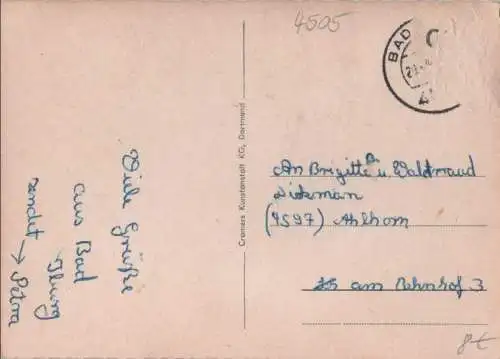 4505
BAD
Viele Grüße
aus Bad
Iburg
sendet → Petra
Cramers Kunstanstalt KG, Dortmund
An Brigitte u. Waltraud
Dickman
(4597) Ahlhorn
am Bahnhof 3
8€